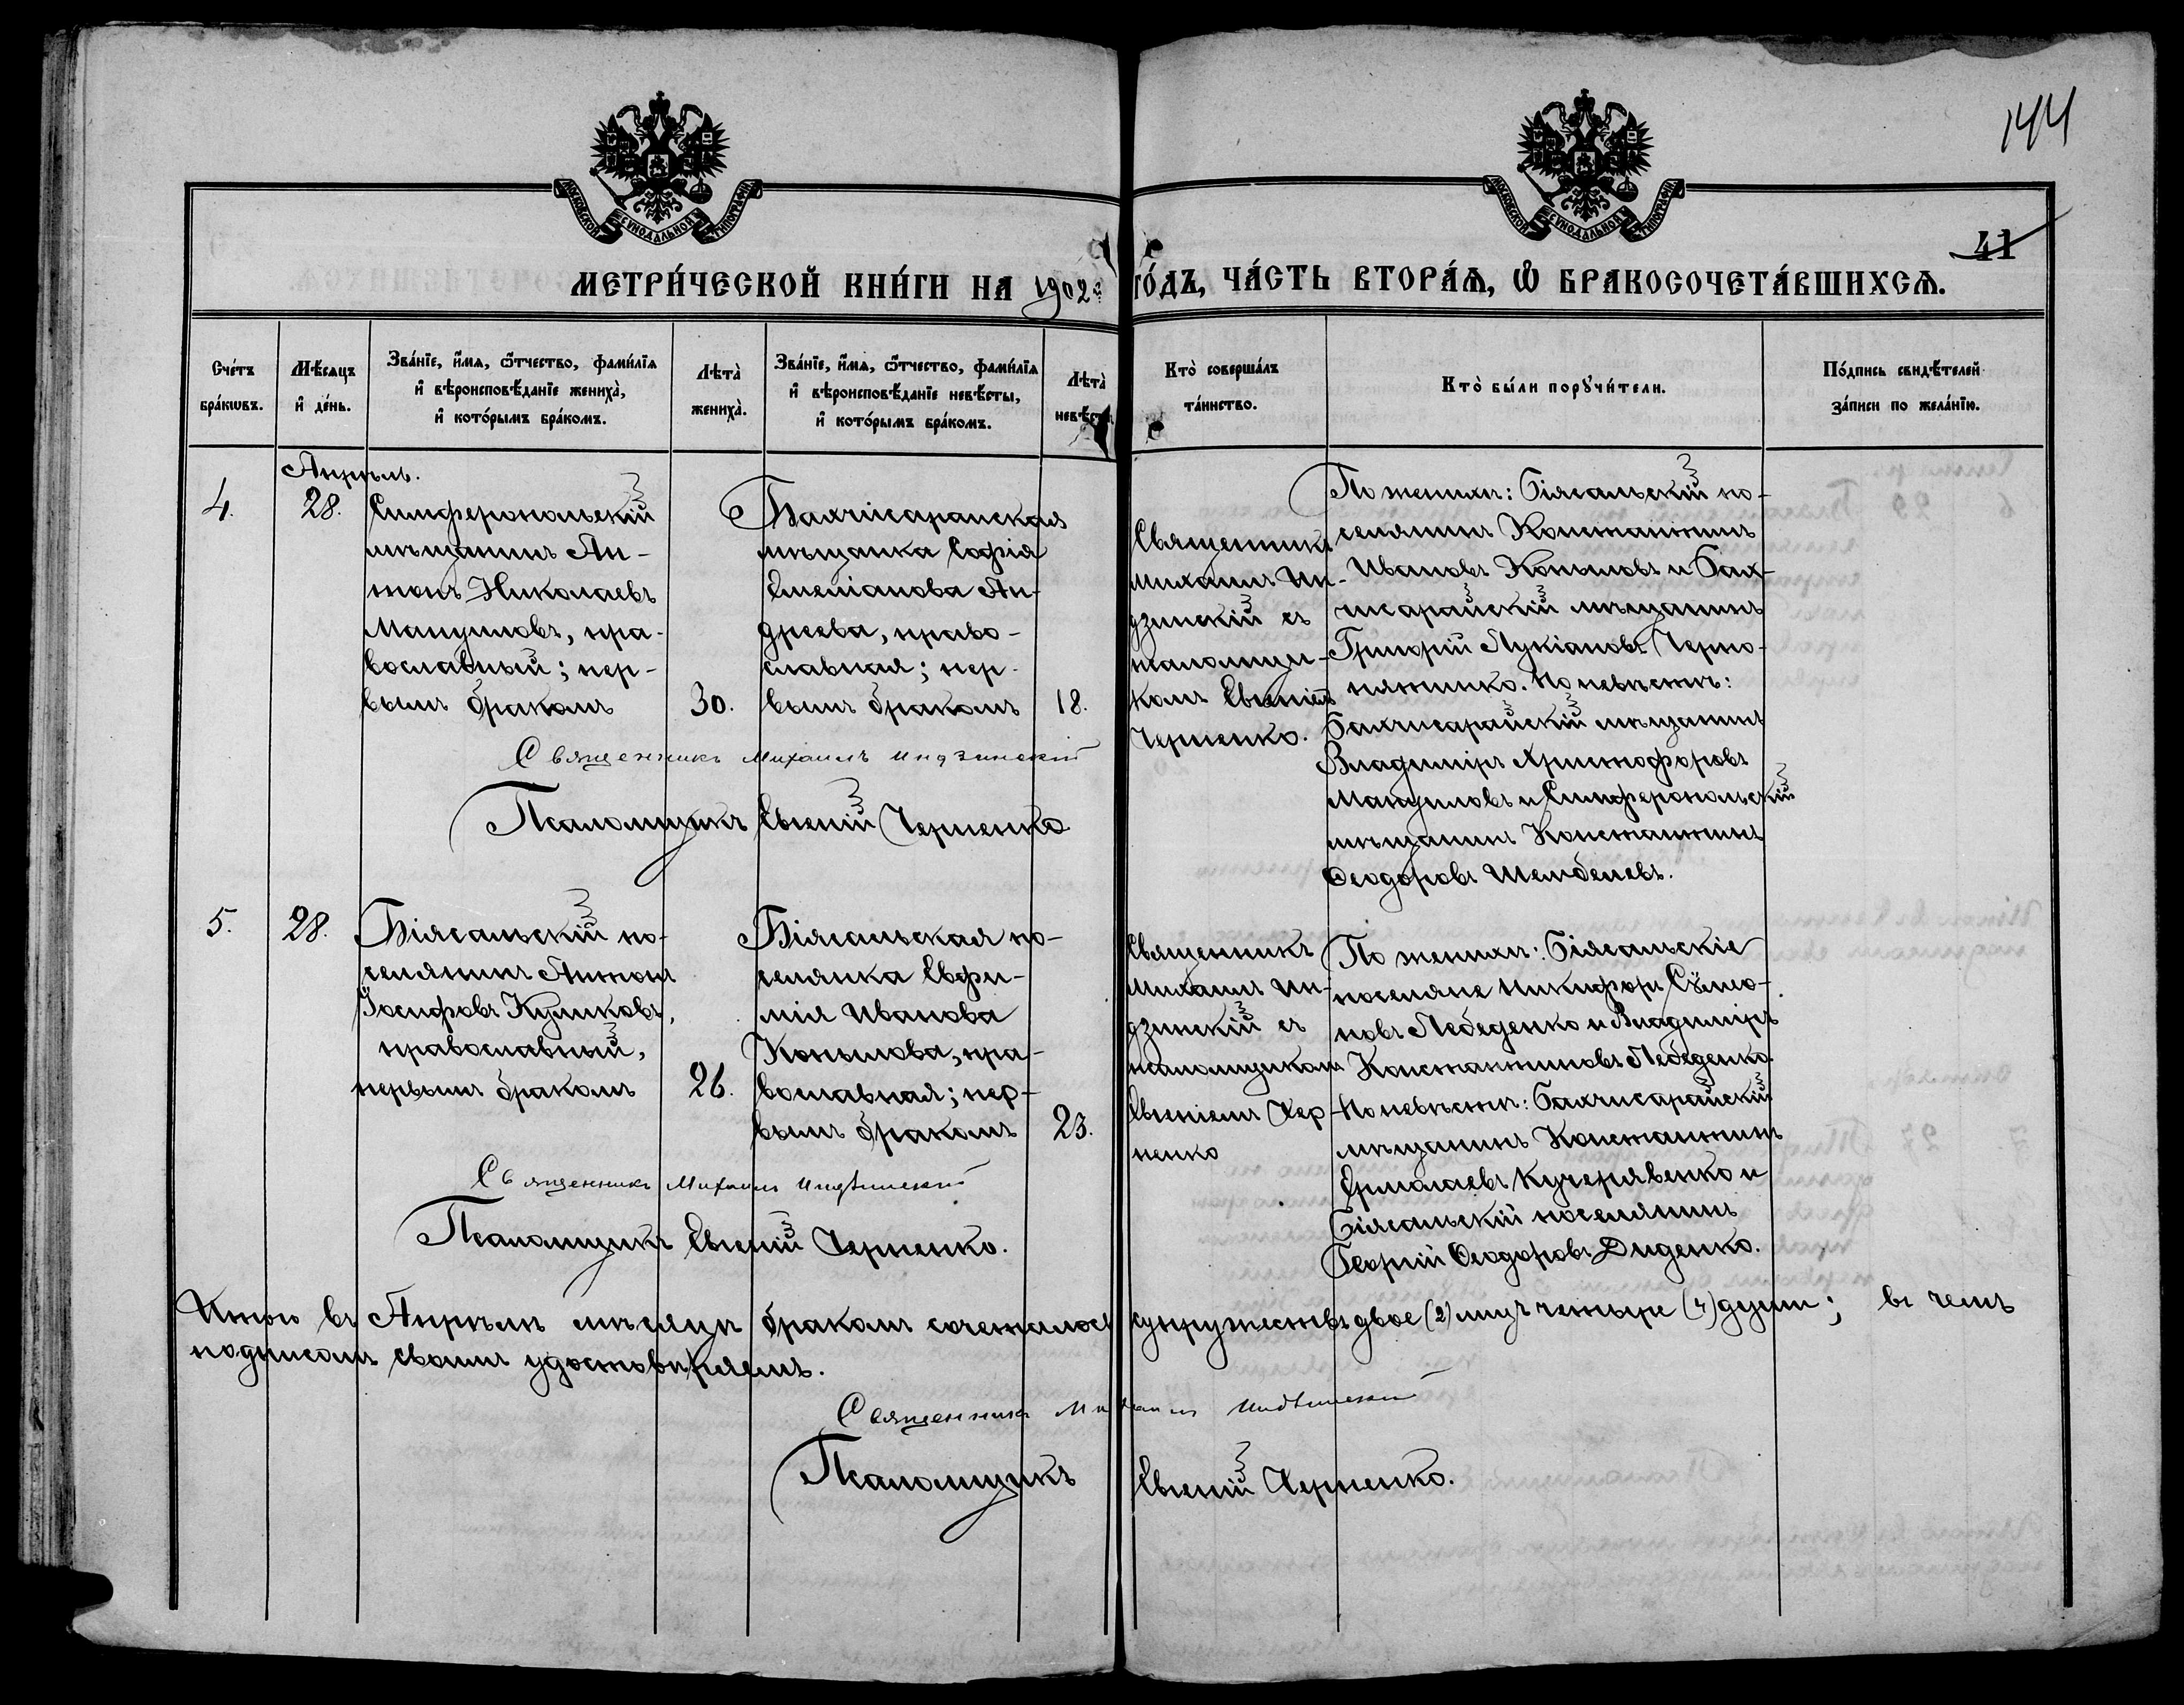 144
41
МОСКОВСКОЙ СѴНОДАЛЬНОЙ ТИПОГРАФІИ
МОСКОВСКОЙ СѴНОДАЛЬНОЙ ТИПОГРАФІИ
МЕТРИ́ЧЕСКОЙ КНИ́ГИ НА 1902й ГО́ДЪ, ЧА́СТЬ ВТОРА́Ѧ, Ѡ҆ БРАКОСОЧЕТА́ВШИХСѦ.
Сче́тъ бра́кѡвъ.
Мѣ́сѧцъ и҆ де́нь.
Зва́нїе, и҆́мѧ, ѻ҆́тчество, фами́лїѧ
и҆ вѣроисповѣ́данїе жениха̀,
и҆ кото́рымъ бра́комъ.
Лѣта̀ жениха̀.
Зва́нїе, и҆́мѧ, ѻ҆́тчество, фами́лїѧ
и҆ вѣроисповѣ́данїе невѣ́сты,
и҆ кото́рымъ бра́комъ.
Лѣта̀
Кто̀ соверша́лъ та́инство.
Кто̀ бы́ли порꙋчи́тели.
По́дпись свидѣ́телей за́писи по жела́нїю.
Апрѣль.
4.
28.
Симферопольскій
мѣщанинъ Ан-
тонъ Николаевъ
Мангуповъ, пра-
вославный; пер-
вымъ бракомъ
30.
Бахчисарайская
мѣщанка Софія
Емеліанова Ан-
дреева, право-
славная; пер-
вымъ бракомъ
18.
Священникъ
Михаилъ Ин-
дзинскій съ
псаломщи-
комъ Евгеніемъ
Черненко.
По женихѣ: Біясальскій по-
селянинъ Константинъ
Ивановъ Копыловъ и Бах-
чисарайскій мѣщанинъ
Григорій Лукіановъ Черно-
пятенко. По невѣстѣ:
Бахчисарайскій мѣщанинъ
Владиміръ Христофоровъ
Мангуповъ и Симферопольскій
мѣщанинъ Константинъ
Ѳеодоровъ Шембелевъ.
Священникъ Михаилъ Индзинскій
Псаломщикъ Евгеній Черненко
5.
28.
Біясальскій по-
селянинъ Антонъ
Іосифовъ Куликовъ,
православный,
первымъ бракомъ
26.
Біясальская по-
селянка Евфи-
мія Иванова
Копылова, пра-
вославная; пер-
вымъ бракомъ
23.
Священникъ
Михаилъ Ин-
дзинскій съ
псаломщикомъ
Евгеніемъ Чер-
ненко
По женихѣ: Біясальскіе
поселяне Никифоръ Сѵмо-
новъ Лебеденко и Владиміръ
Константиновъ Лебеденко.
По невѣстѣ: Бахчисарайскій
мѣщанинъ Константинъ
Ермолаевъ Кучерявенко и
Біясальскій поселянинъ
Георгій Ѳеодоровъ Диденко.
Священникъ Михаилъ Индзинскій
Псаломщикъ Евгеній Черненко.
Итого въ Апрѣлѣ мѣсяцѣ бракомъ сочеталось супружествъ двое (2) лицъ четыре (4) души; въ чемъ
подписомъ своимъ удостовѣряемъ.
Священникъ Михаилъ Индзинскій
Псаломщикъ Евгеній Черненко.